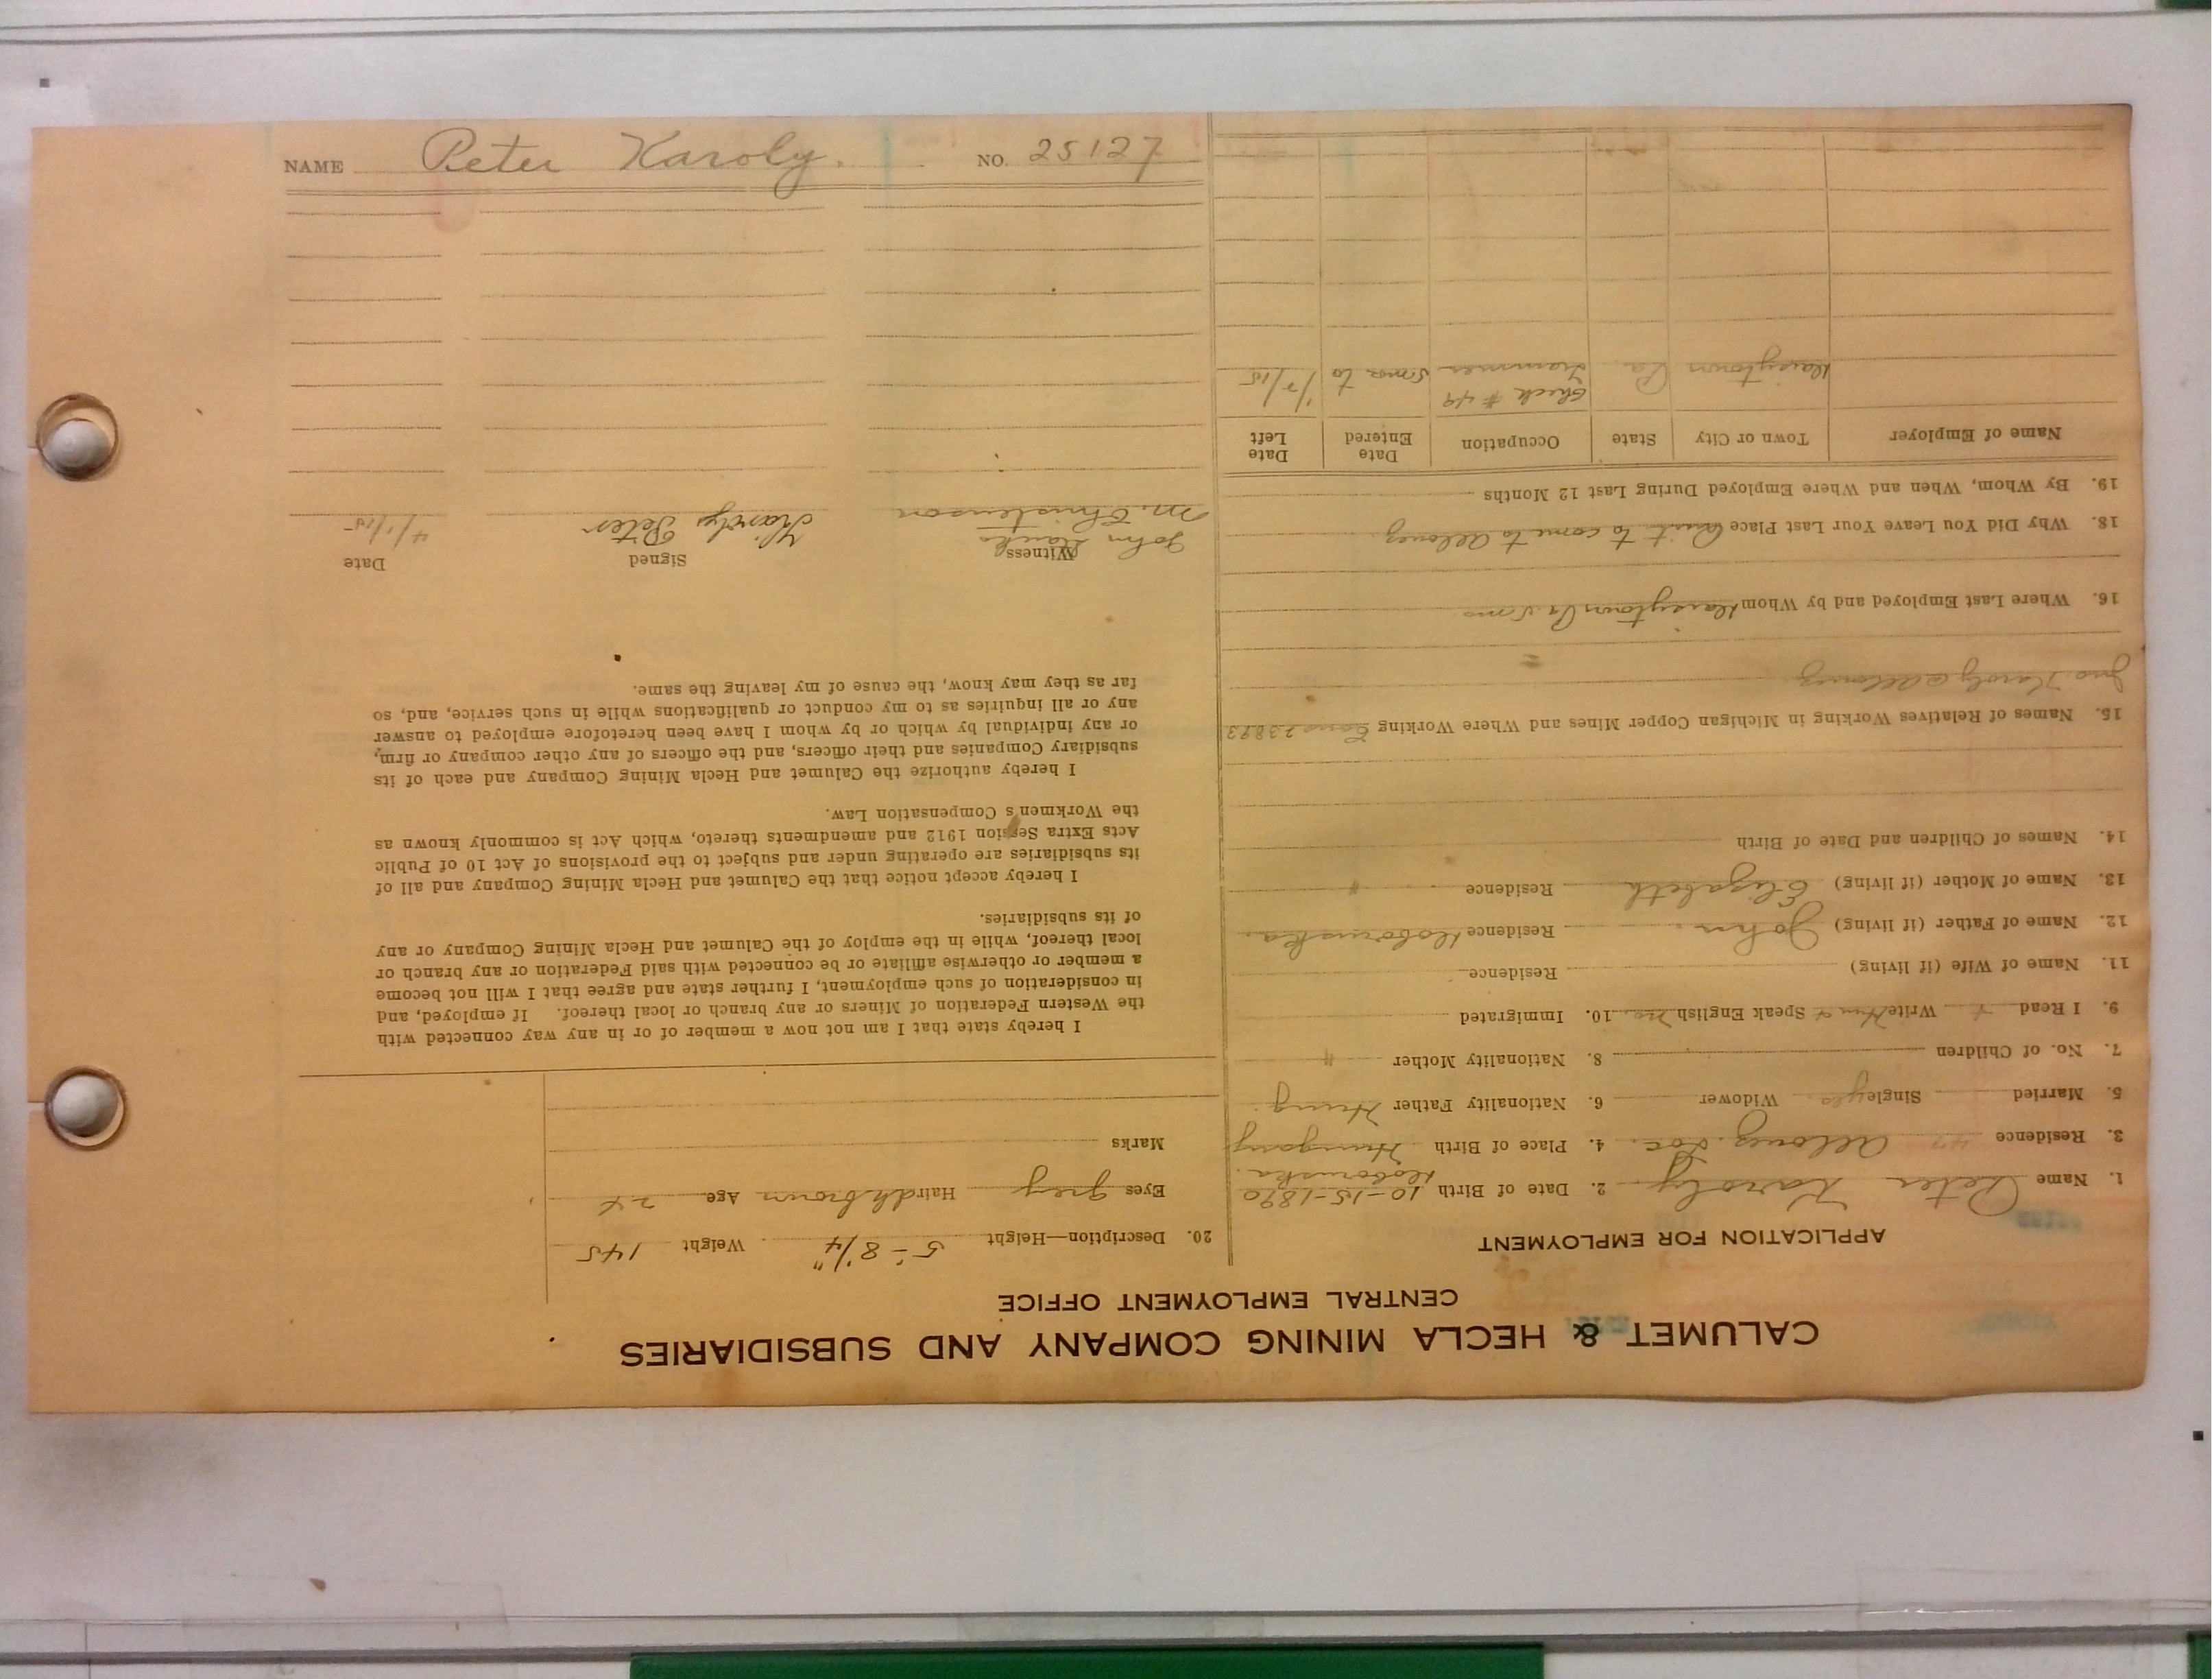 NAME Peter Karoly. NO. 25127
CALUMET & HECLA MINING COMPANY AND SUBSIDIARIES
CENTRAL EMPLOYMENT OFFICE
APPLICATION FOR EMPLOYMENT
1. Name Peter Karoly. 2. Date of Birth 10-15-1890
3. Residence 47 Allouez Loc. 4. Place of Birth Hungary
5. Married Single yes. Widower 6. Nationality Father Hung.
7. No. of Children 8. Nationality Mother "
9. I Read + Write Hun + Speak English no. 10. Immigrated
11. Name of Wife (if living) Residence
12. Name of Father (if living) John. Residence
13. Name of Mother (if living) Elizabeth Residence "
14. Names of Children and Date of Birth
15. Names of Relatives Working in Michigan Copper Mines and Where Working 23893
Jno Karoly @ Allouez
16. Where Last Employed and by Whom Pa 5 mos
18. Why Did You Leave Your Last Place Quit to come to Allouez.
19. By Whom, When and Where Employed During Last 12 Months
Name of Employer Town or City State Occupation Date Entered Date Left
Check # 49
Pa. trammer 5 mos to 1/7/15
20. Description—Height 5'-8 1/4" Weight 145
Eyes grey Hair dk brown Age 24
Marks
I hereby state that I am not now a member of or in any way connected with
the Western Federation of Miners or any branch or local thereof. If employed, and
in consideration of such employment, I further state and agree that I will not become
a member or otherwise affiliate or be connected with said Federation or any branch or
local thereof, while in the employ of the Calumet and Hecla Mining Company or any
of its subsidiaries.
I hereby accept notice that the Calumet and Hecla Mining Company and all of
its subsidiaries are operating under and subject to the provisions of Act 10 of Public
Acts Extra Session 1912 and amendments thereto, which Act is commonly known as
the Workmen's Compensation Law.
I hereby authorize the Calumet and Hecla Mining Company and each of its
subsidiary Companies and their officers, and the officers of any other company or firm,
or any individual by which or by whom I have been heretofore employed to answer
any or all inquiries as to my conduct or qualifications while in such service, and, so
far as they may know, the cause of my leaving the same.
Witness Signed Date
John
M. Christenson Károly Péter 4/1/15